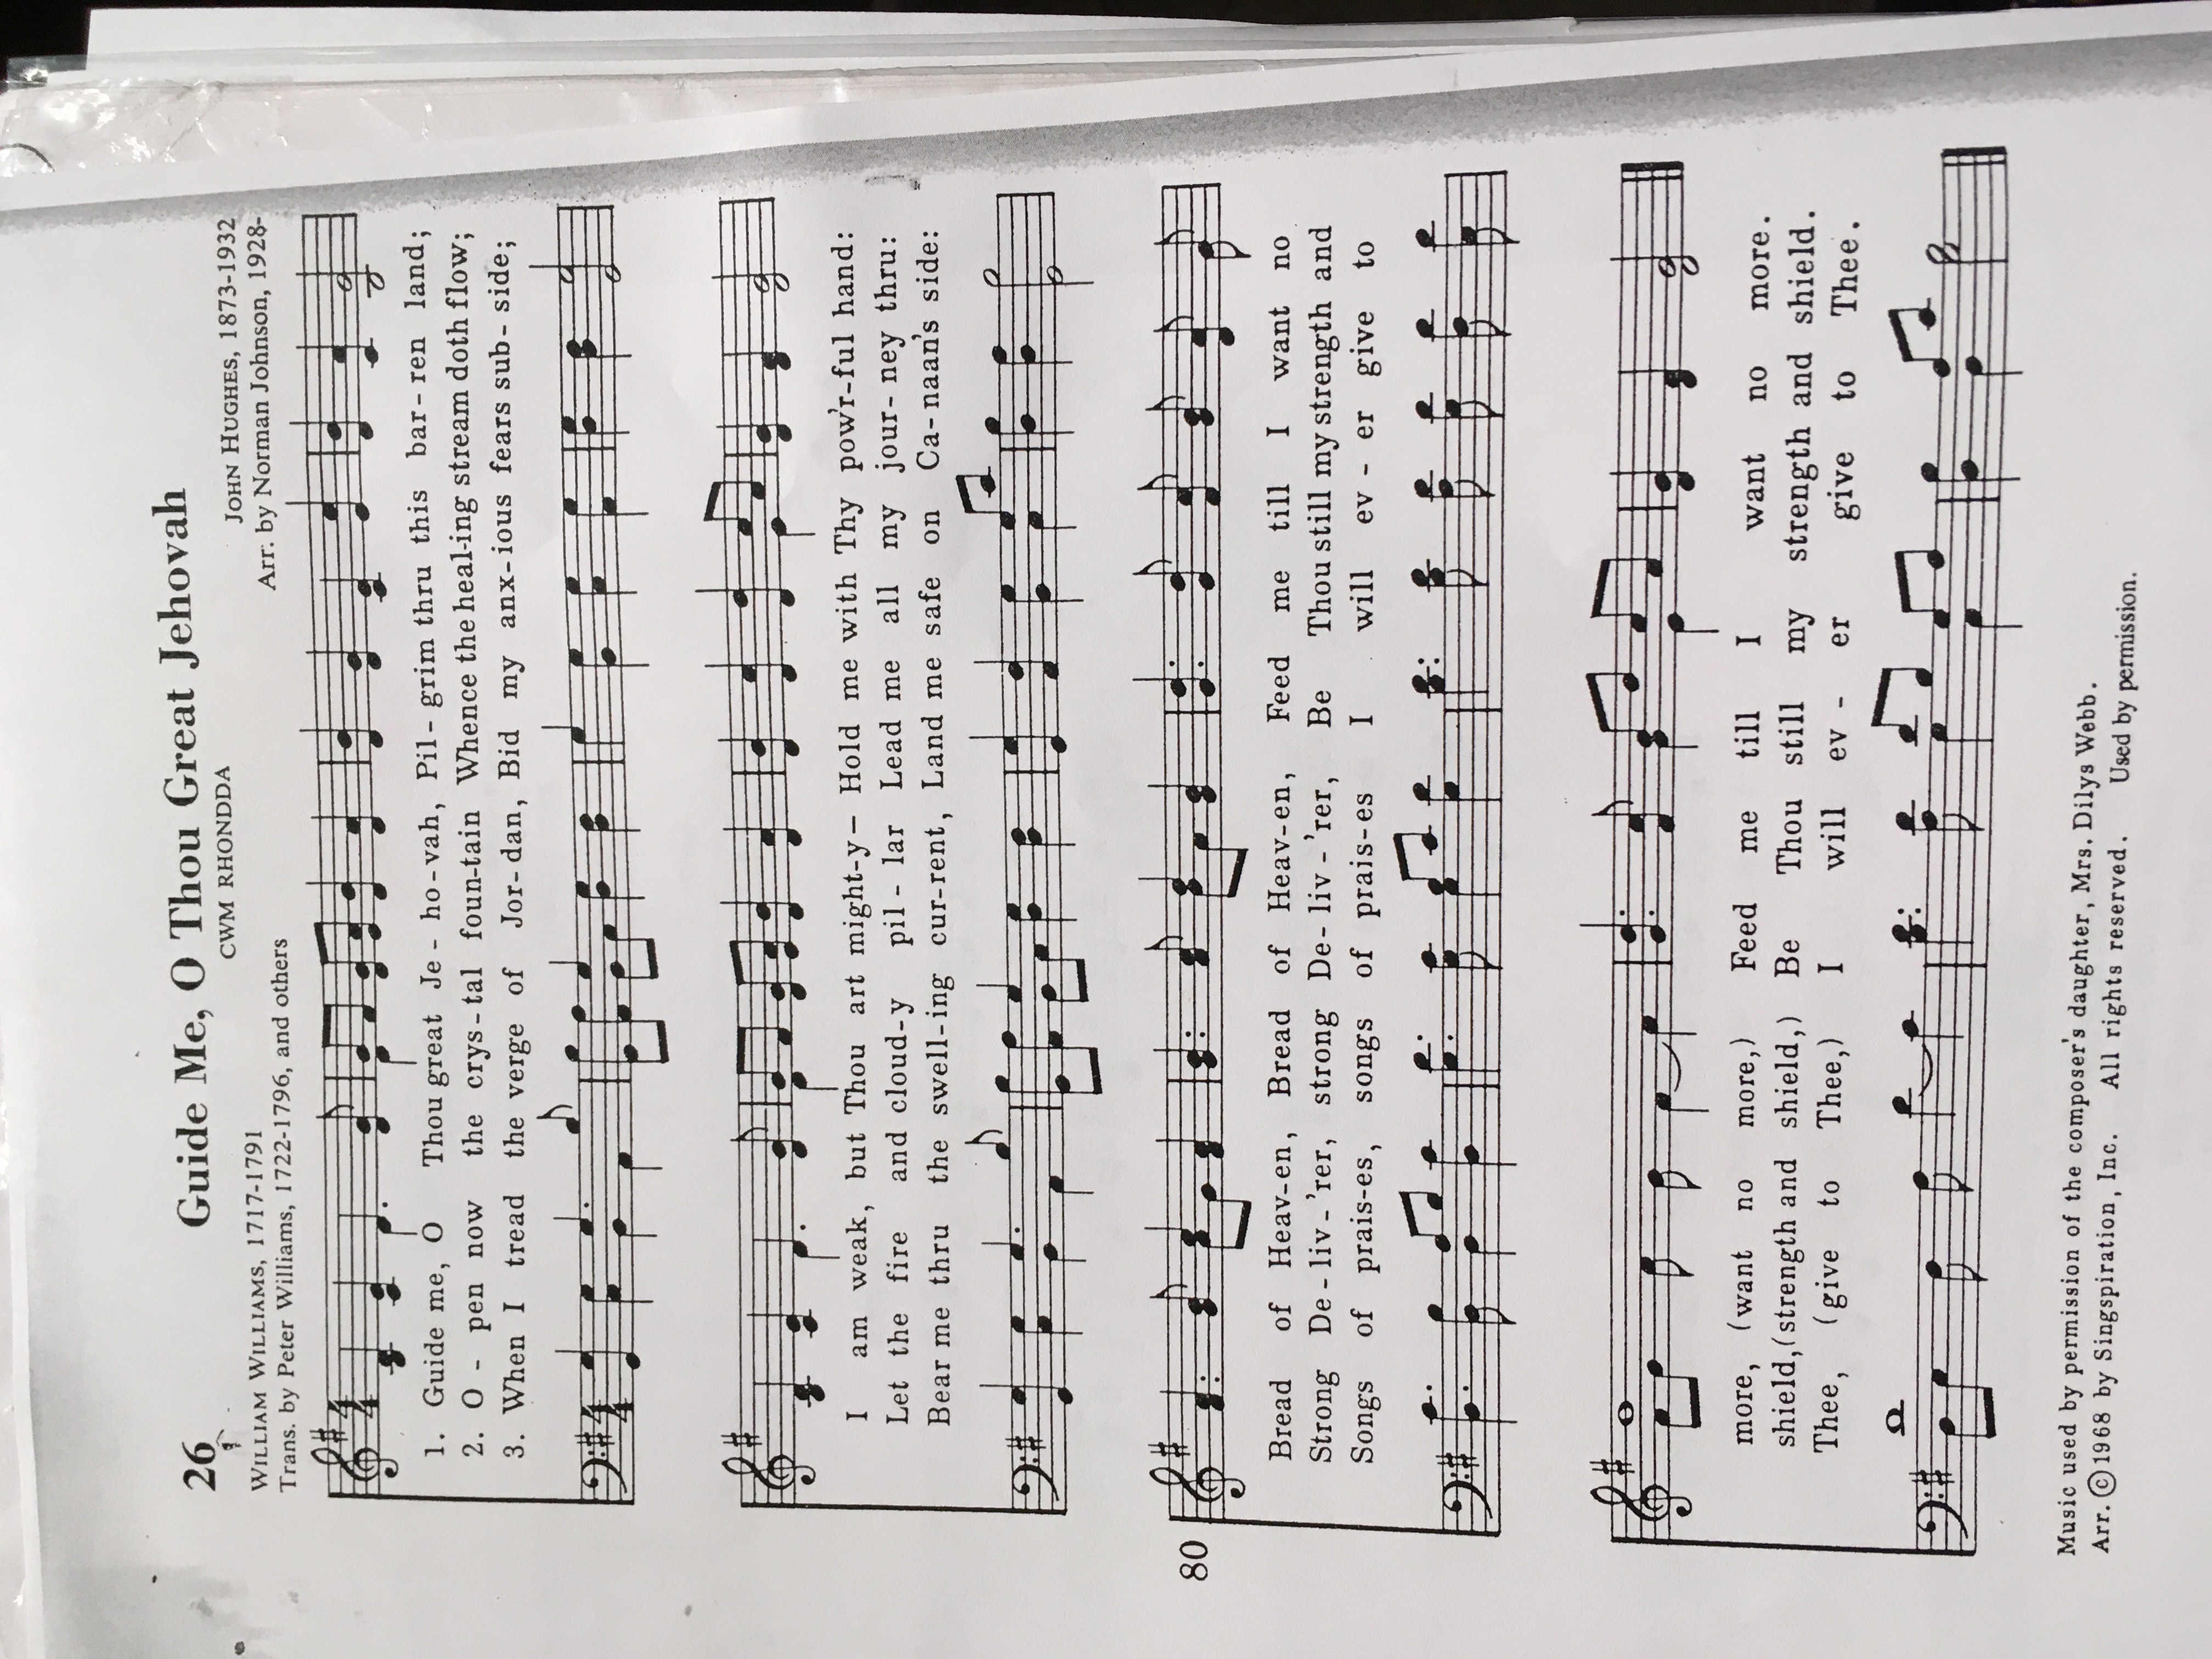 26
Guide Me, O Thou Great Jehovah
CWM RHONDDA
WILLIAM WILLIAMS, 1717-1791
Trans. by Peter Williams, 1722-1796, and others
JOHN HUGHES, 1873-1932
Arr. by Norman Johnson, 1928-
1. Guide me, O Thou great Je - ho - vah, Pil - grim thru this bar - ren land;
2. O - pen now the crys - tal foun-tain Whence the heal-ing stream doth flow;
3. When I tread the verge of Jor - dan, Bid my anx-ious fears sub - side;
I am weak, but Thou art might-y— Hold me with Thy pow'r-ful hand:
Let the fire and cloud-y pil - lar Lead me all my jour - ney thru:
Bear me thru the swell-ing cur-rent, Land me safe on Ca - naan's side:
80
Bread of Heav-en, Bread of Heav-en, Feed me till I want no
Strong De - liv -'rer, strong De - liv -'rer, Be Thou still my strength and
Songs of prais-es, songs of prais-es I will ev - er give to
more, (want no more,) Feed me till I want no more.
shield, (strength and shield,) Be Thou still my strength and shield.
Thee, (give to Thee,) I will ev - er give to Thee.
Music used by permission of the composer's daughter, Mrs. Dilys Webb.
Arr. ©1968 by Singspiration, Inc. All rights reserved. Used by permission.